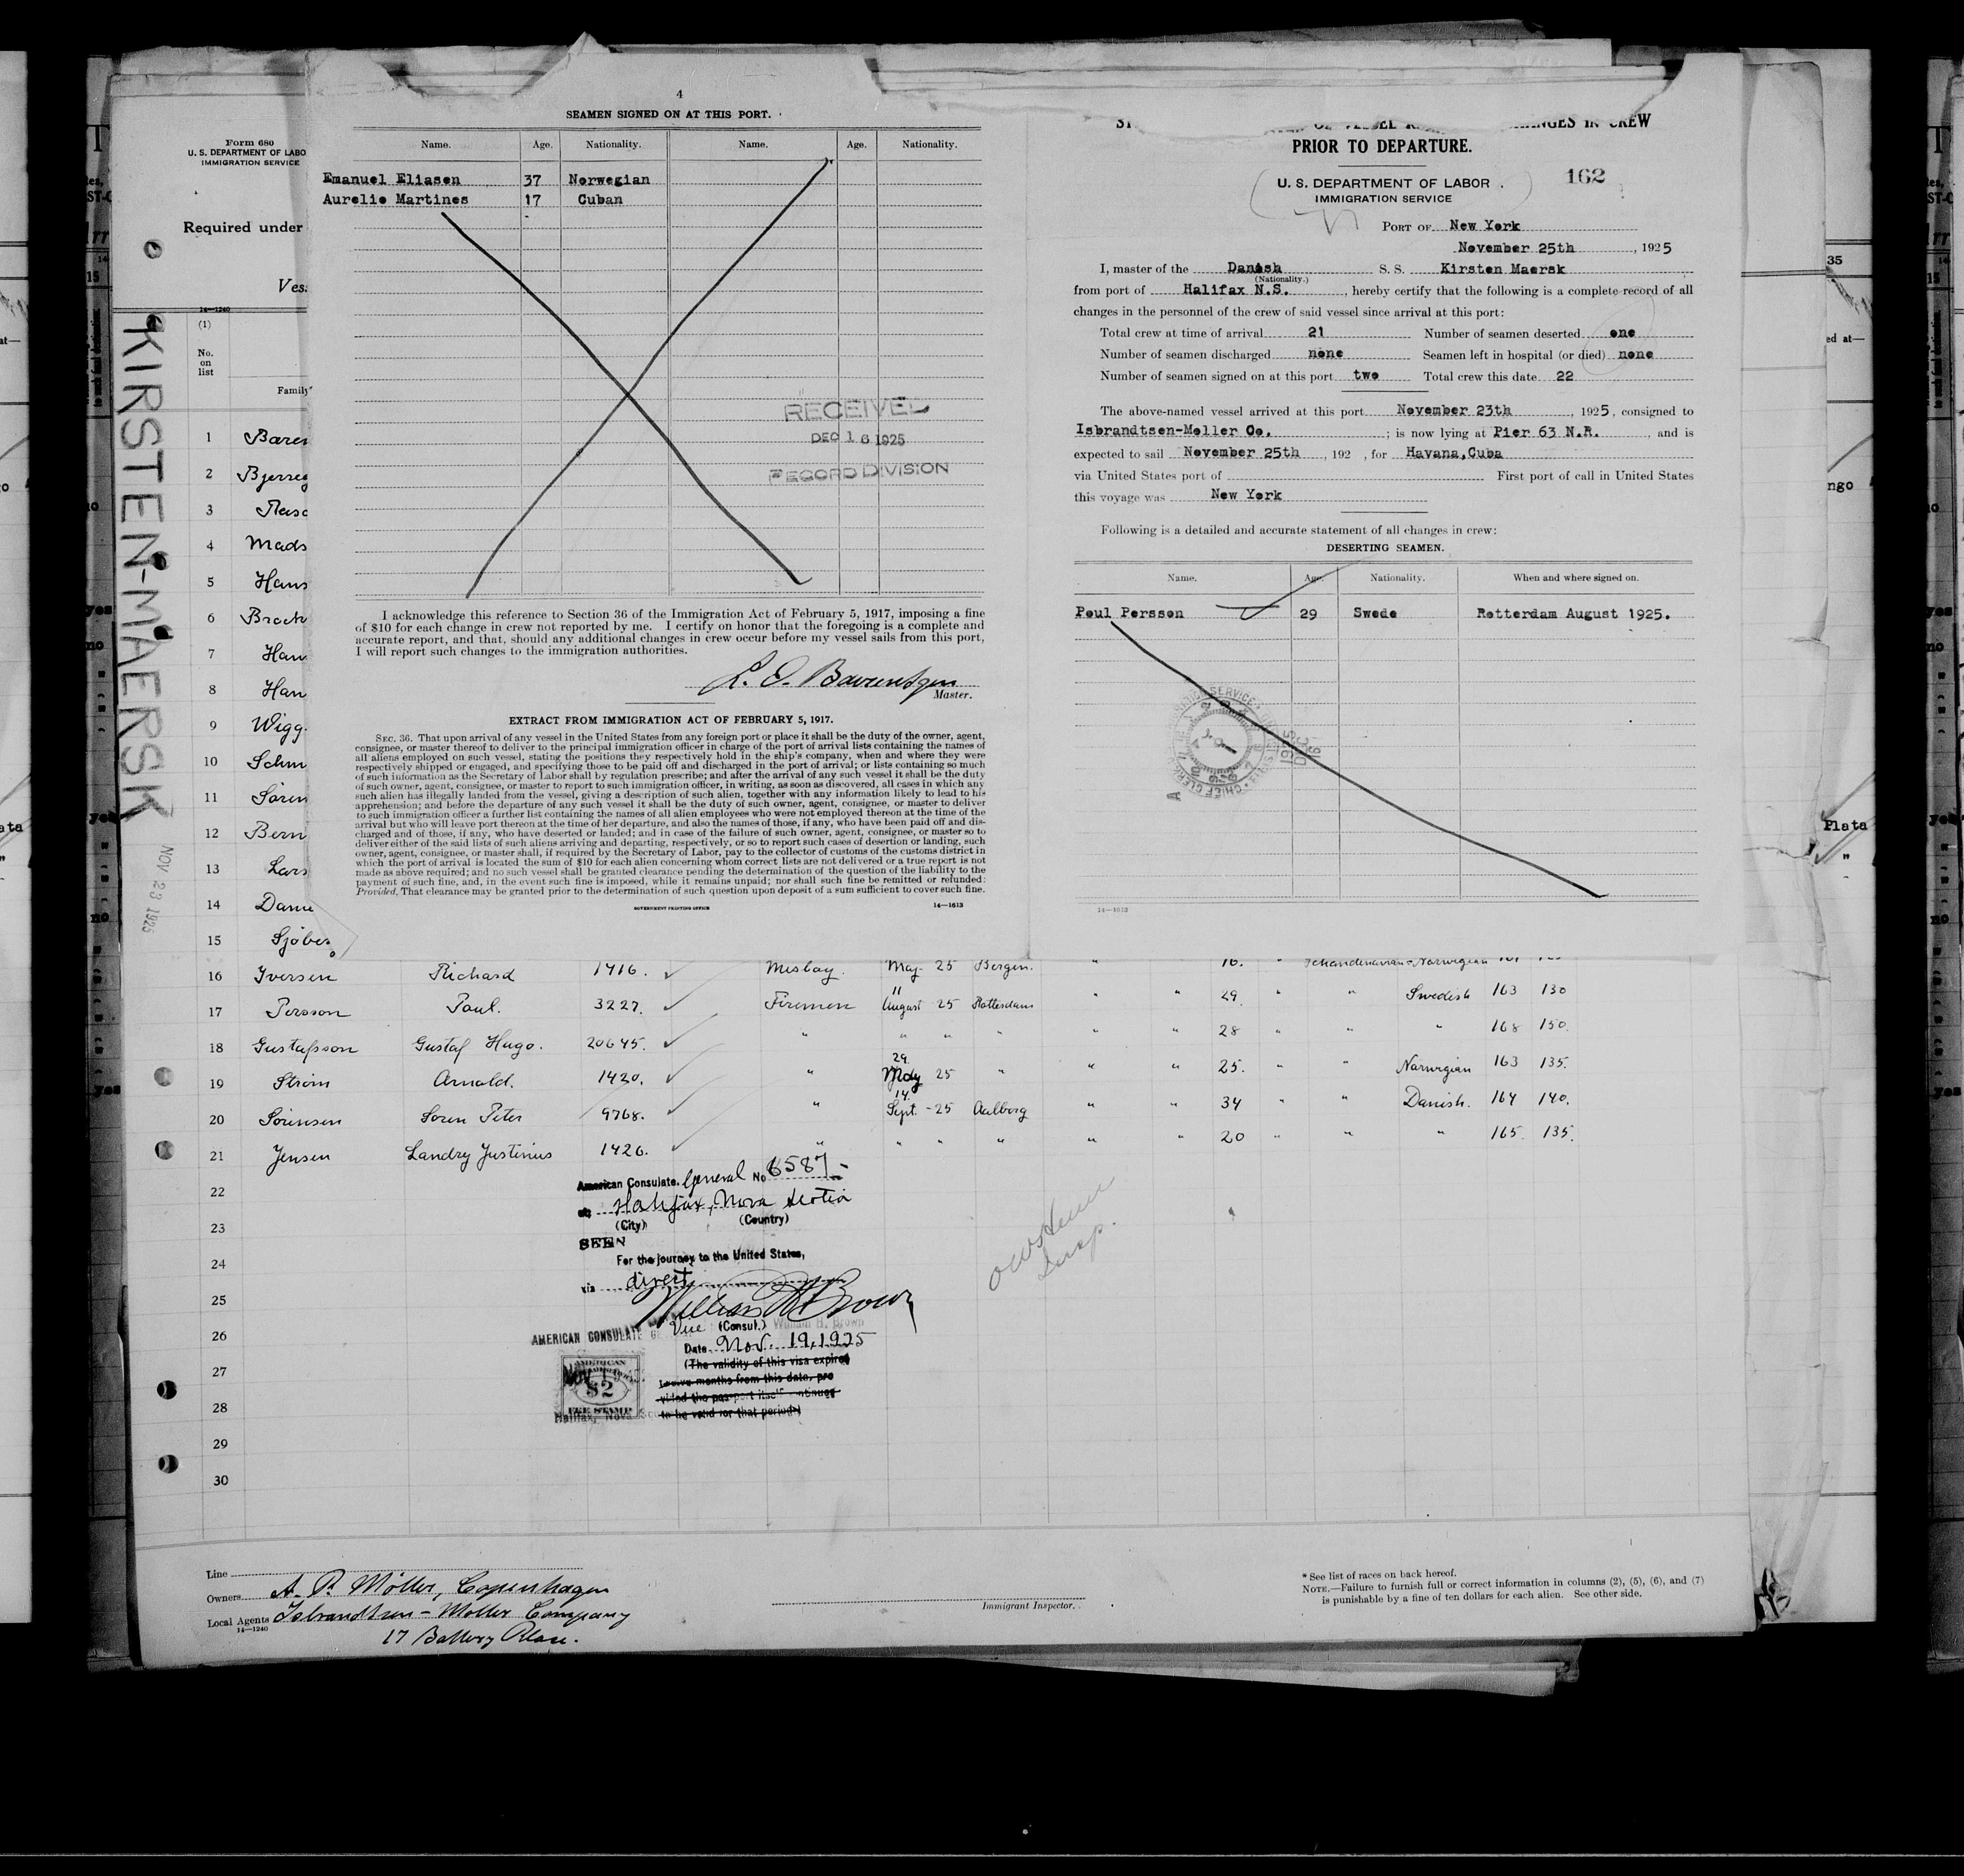 4
SEAMEN SIGNED ON AT THIS PORT.
Name. Age. Nationality. Name. Age. Nationality.
Emanuel Eliasen 37 Norwegian
Aurelio Martines 17 Cuban
RECEIVED
DEC 16 1925
RECORD DIVISION
I acknowledge this reference to Section 36 of the Immigration Act of February 5, 1917, imposing a fine
of $10 for each change in crew not reported by me. I certify on honor that the foregoing is a complete and
accurate report, and that, should any additional changes in crew occur before my vessel sails from this port,
I will report such changes to the immigration authorities.
Master.
EXTRACT FROM IMMIGRATION ACT OF FEBRUARY 5, 1917.
SEC. 36. That upon arrival of any vessel in the United States from any foreign port or place it shall be the duty of the owner, agent,
consignee, or master thereof to deliver to the principal immigration officer in charge of the port of arrival lists containing the names of
all aliens employed on such vessel, stating the positions they respectively hold in the ship's company, when and where they were
respectively shipped or engaged, and specifying those to be paid off and discharged in the port of arrival; or lists containing so much
of such information as the Secretary of Labor shall by regulation prescribe; and after the arrival of any such vessel it shall be the duty
of such owner, agent, consignee, or master to report to such immigration officer, in writing, as soon as discovered, all cases in which any
such alien has illegally landed from the vessel, giving a description of such alien, together with any information likely to lead to his
apprehension; and before the departure of any such vessel it shall be the duty of such owner, agent, consignee, or master to deliver
to such immigration officer a further list containing the names of all alien employees who were not employed thereon at the time of the
arrival but who will leave port thereon at the time of her departure, and also the names of those, if any, who have been paid off and dis-
charged and of those, if any, who have deserted or landed; and in case of the failure of such owner, agent, consignee, or master so to
deliver either of the said lists of such aliens arriving and departing, respectively, or so to report such cases of desertion or landing, such
owner, agent, consignee, or master shall, if required by the Secretary of Labor, pay to the collector of customs of the customs district in
which the port of arrival is located the sum of $10 for each alien concerning whom correct lists are not delivered or a true report is not
made as above required; and no such vessel shall be granted clearance pending the determination of the question of the liability to the
payment of such fine, and, in the event such fine is imposed, while it remains unpaid; nor shall such fine be remitted or refunded:
Provided, That clearance may be granted prior to the determination of such question upon deposit of a sum sufficient to cover such fine.
GOVERNMENT PRINTING OFFICE 14—1613
CHANGES IN CREW
PRIOR TO DEPARTURE.
U. S. DEPARTMENT OF LABOR
IMMIGRATION SERVICE
162
PORT OF New York
November 25th, 1925
I, master of the Danish S. S. Kirsten Maersk
(Nationality.)
from port of Halifax N.S., hereby certify that the following is a complete record of all
changes in the personnel of the crew of said vessel since arrival at this port:
Total crew at time of arrival 21 Number of seamen deserted one
Number of seamen discharged none Seamen left in hospital (or died) none
Number of seamen signed on at this port two Total crew this date 22
The above-named vessel arrived at this port November 23th, 1925, consigned to
Isbrandtsen-Moller Co. ; is now lying at Pier 63 N.R., and is
expected to sail November 25th, 192 , for Havana,Cuba
via United States port of First port of call in United States
this voyage was New York
Following is a detailed and accurate statement of all changes in crew:
DESERTING SEAMEN.
Name. Age. Nationality. When and where signed on.
Poul Persson 29 Swede Rotterdam August 1925.
14—1613
Form 680
U. S. DEPARTMENT OF LABO
IMMIGRATION SERVICE
Required under
Ves
14—1240
(1)
No.
on
list
Family
KIRSTEN-MAERSK
NOV 23 1925
1 Baren
2 Bjerreg
3
4 Mads
5 Hans
6 Broch
7 Han
8 Han
9 Wigg
10 Schm
11 Sören
12 Bern
13 Lars
14 Dam
15 Sjöber
16 Iversen Richard 1416. Mesboy. May 25 Bergen. " " 16. " Schandinavian Norwegian
17 Persson Paul. 3227. Firemen 11 August 25 Rotterdam " " 29. " " Swedish 163 130
18 Gustafsson Gustaf Hugo. 20645. " " " " " " 28 " " " 168 150.
19 Ström Arnold. 1420. " 29. May 25 " " " 25. " " Norwegian 163 135.
20 Sörensen Sören Peter 9768. " 14. Sept. -25 Aalborg " " 34 " " Danish. 164 140.
21 Jensen Landry Justinus 1426. " " " " " " 20 " " " 165. 135.
22
23
24
25
26
27
28
29
30
American Consulate. General No 6587-
at Halifax, Nova Scotia
(City) (Country)
SEEN
For the journey to the United States,
via direct
William H Brown
Vice (Consul.) William H. Brown
AMERICAN CONSULATE GE
Date Nov. 19, 1925
(The validity of this visa expires
twelve months from this date, pro
vided the passport itself continues
to be valid for that period)
AMERICAN
$2
FEE STAMP
Halifax, Nova Sco
Insp.
Line
Owners A. P. Möller, Copenhagen
Local Agents Isbrandtsen - Moller Company
14—1240
17 Battery Place.
Immigrant Inspector.
* See list of races on back hereof.
NOTE.—Failure to furnish full or correct information in columns (2), (5), (6), and (7)
is punishable by a fine of ten dollars for each alien. See other side.
35
ed at—
ngo
Plata
"